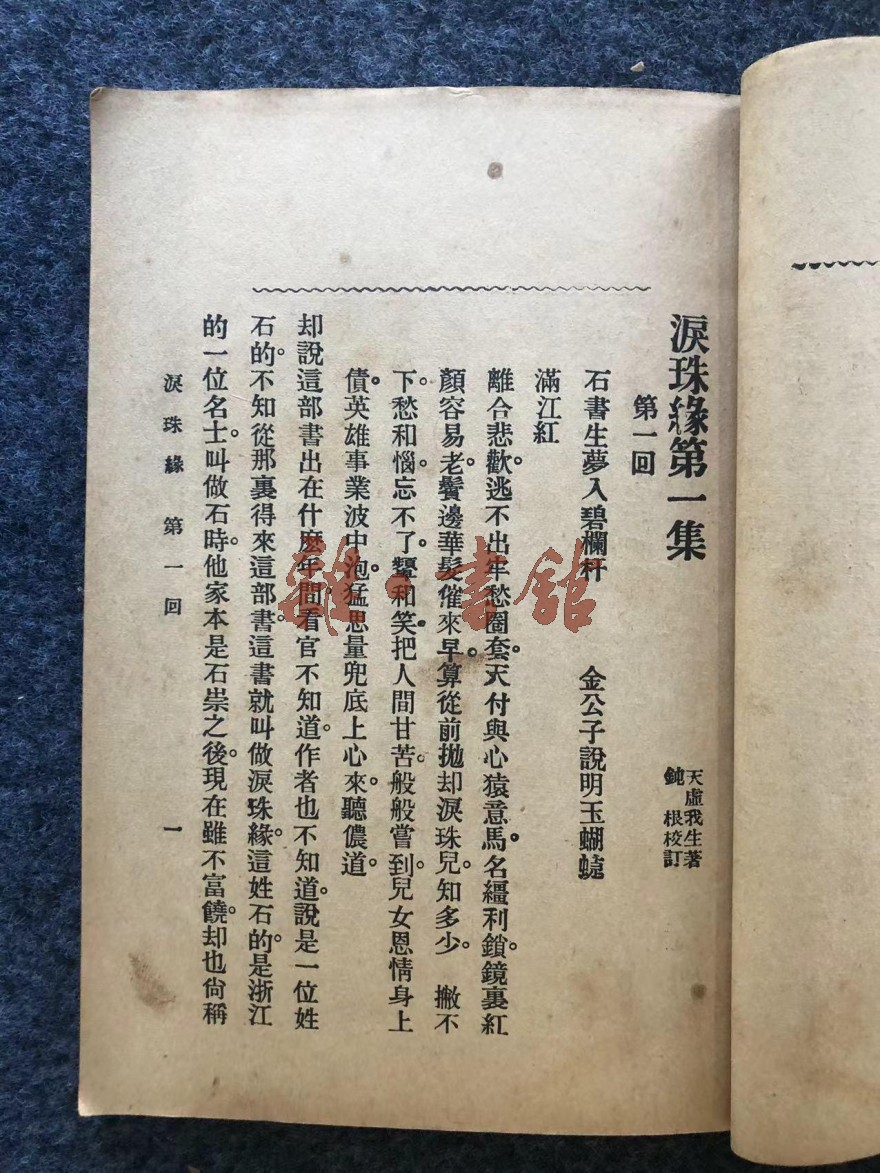 淚珠緣第一集
天虛我生著
鈍根校訂
第一回
石書生夢入碧欄杆　金公子說明玉蝴蝶
滿江紅
離合悲歡。逃不出牢愁圈套。天付與心猿意馬。名繮利鎖。鏡裏紅
顏容易老。鬢邊華髮催來早。算從前拋却淚珠兒。知多少。　撇不
下。愁和惱。忘不了。顰和笑。把人間甘苦。般般嘗到。兒女恩情身上
債。英雄事業波中泡。猛思量兜底上心來。聽儂道。
却說這部書出在什麼年間。看官不知道。作者也不知道。說是一位姓
石的。不知從那裏得來這部書。這書就叫做淚珠緣。這姓石的。是浙江
的一位名士。叫做石時。他家本是石崇之後。現在雖不富饒。却也尙稱
淚珠緣　第一回　一
雜·書館